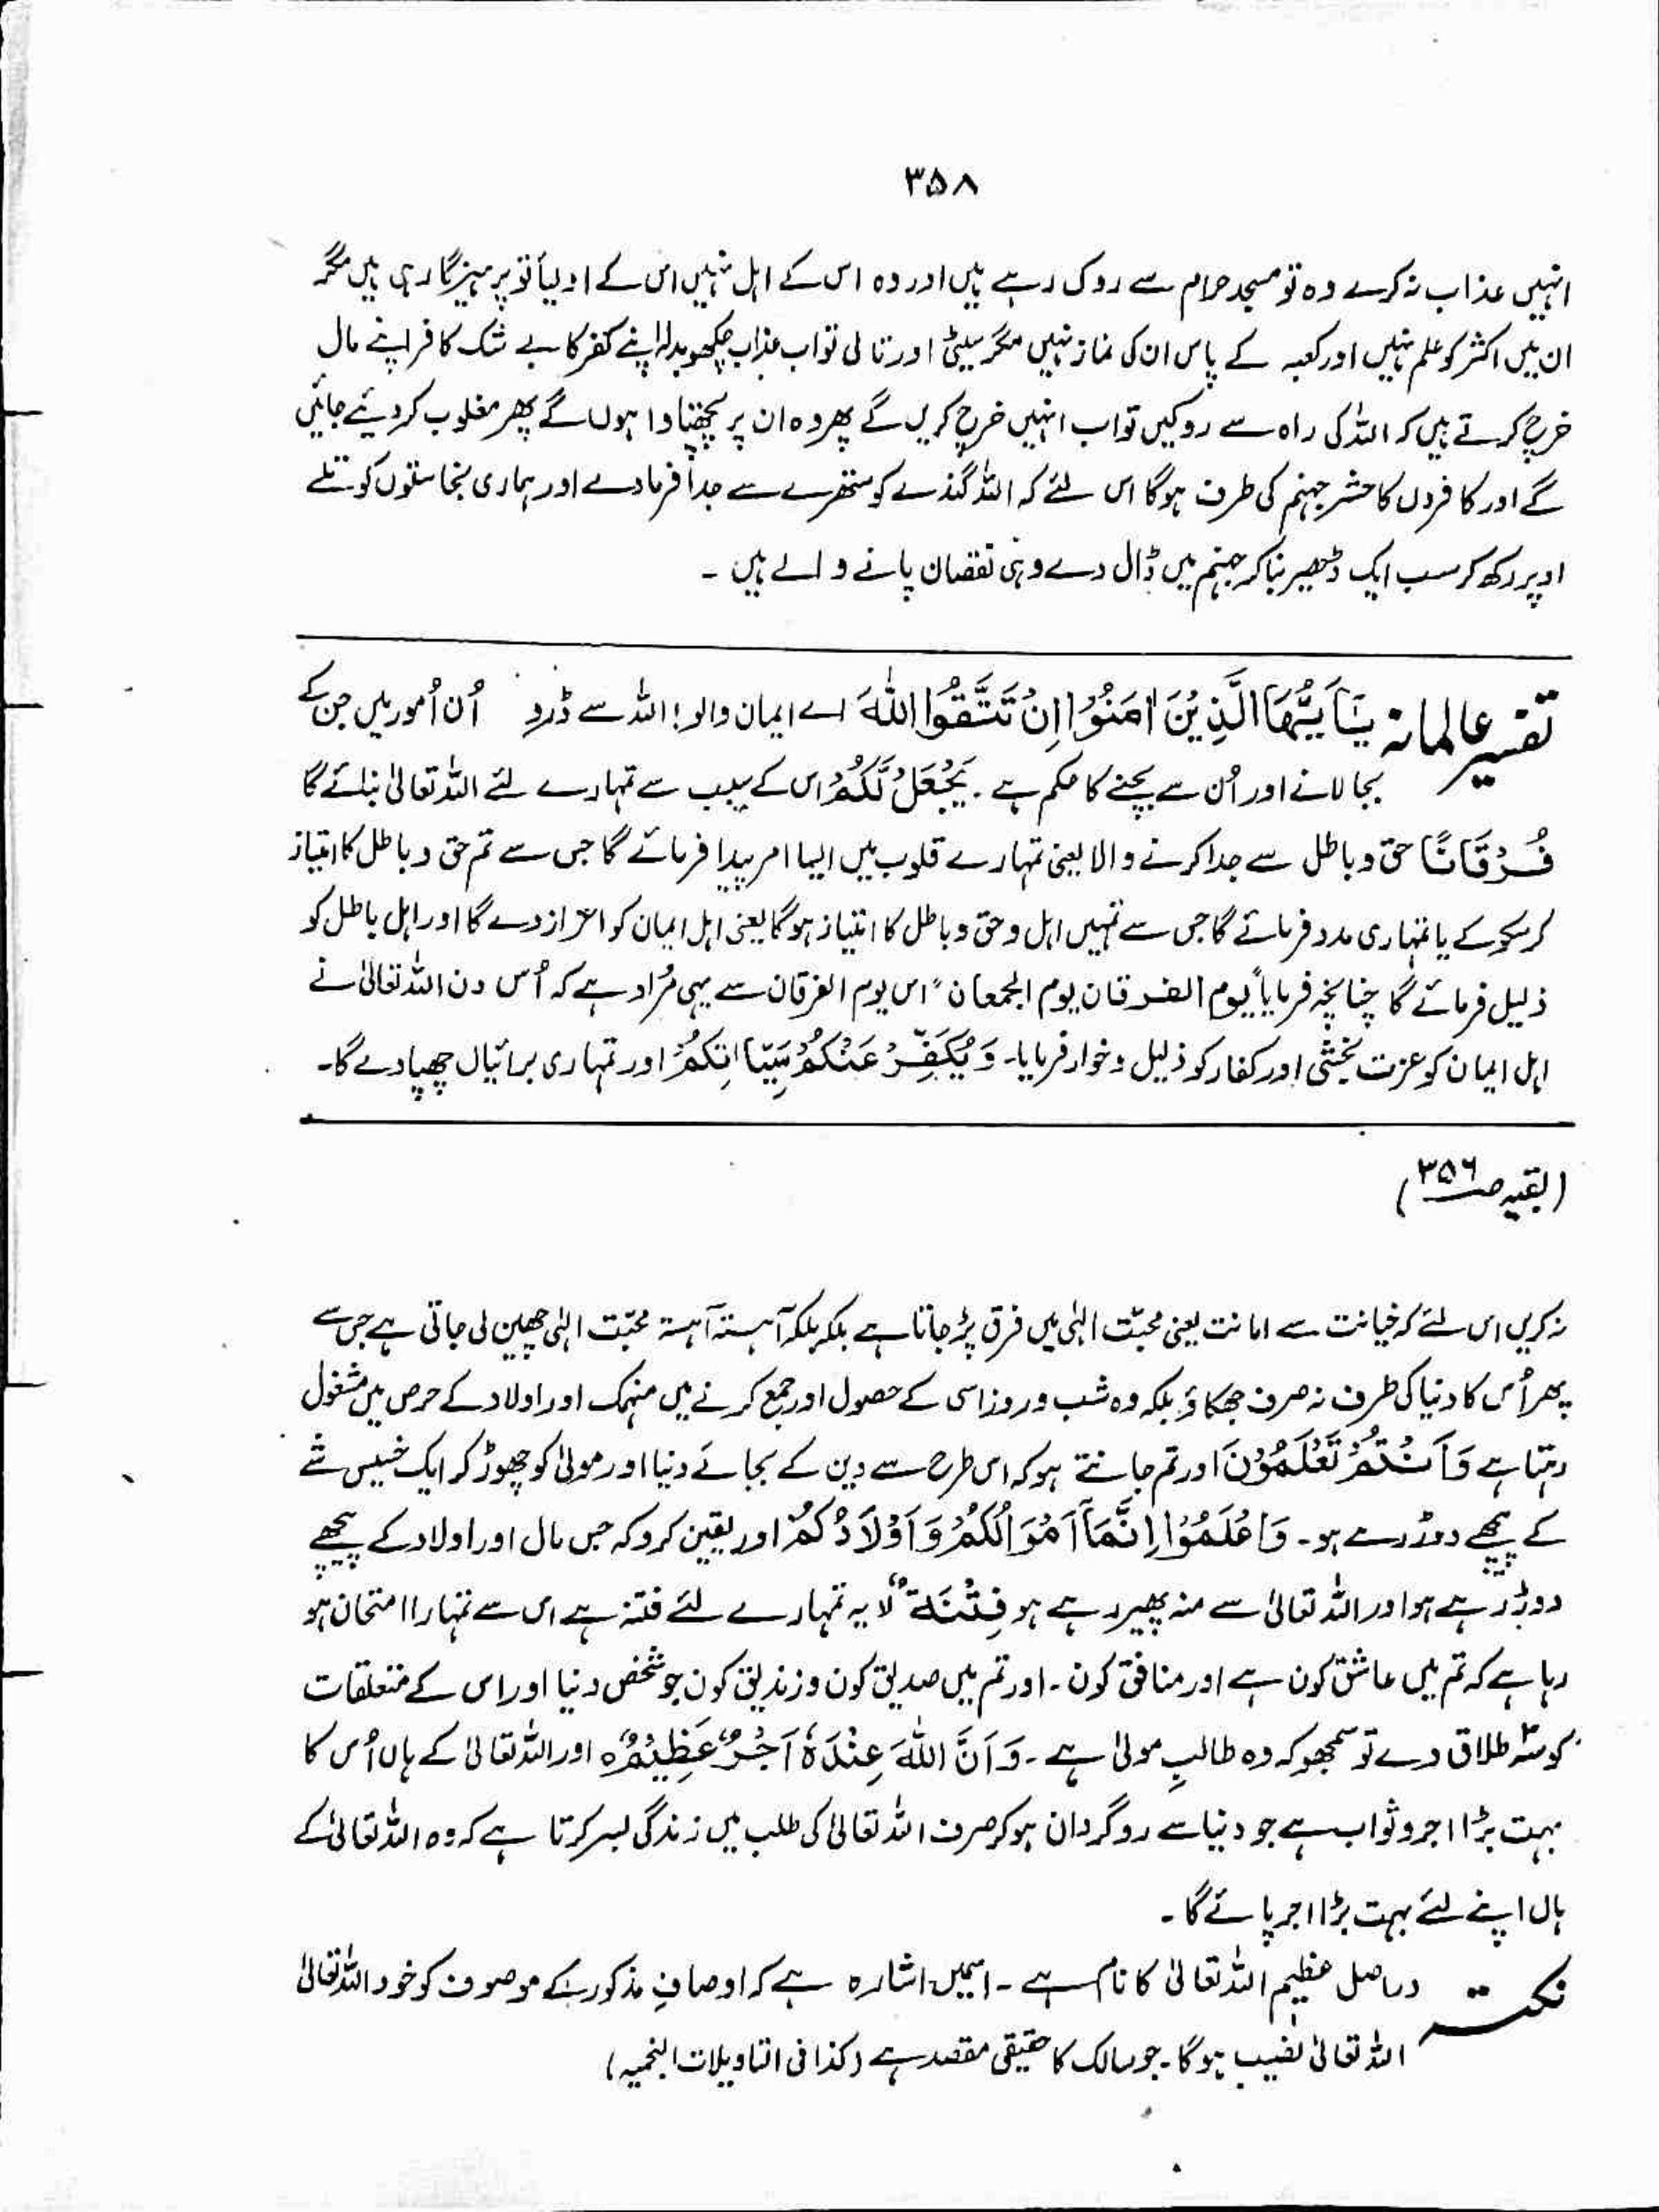 ۳۵۸
انہیں عذاب نہ کرے وہ تو مسجد حرام سے روک رہے ہیں اور وہ اس کے اہل نہیں اس کے اولیأ تو پرہیزگار ہی ہیں مگر
ان میں اکثر کو علم نہیں اور کعبہ کے پاس ان کی نماز نہیں مگر سیٹی اور تالی تو اب عذاب چکھو بدلہ اپنے کفر کا بے شک کافر اپنے مال
خرچ کرتے ہیں کہ اللہ کی راہ سے روکیں تو اب انہیں خرچ کریں گے پھر وہ ان پر پچھتاوا ہوں گے پھر مغلوب کر دیئے جائیں
گے اور کافروں کا حشر جہنم کی طرف ہوگا اس لئے کہ اللہ گندے کو ستھرے سے جدا فرمادے اور ہماری نجاستوں کو تلے
اوپر رکھ کر سب ایک ڈھیر بنا کر جہنم میں ڈال دے وہی نقصان پانے والے ہیں ۔
تفسیر عالمانہ یٰۤاَیُّهَا الَّذِیْنَ اٰمَنُوْۤا اِنْ تَتَّقُوا اللّٰهَ اے ایمان والو! اللہ سے ڈرو اُن اُمور میں جن کے
بجالانے اور اُن سے بچنے کا حکم ہے ۔ یَجْعَلْ لَّكُمْ اس کے سبب سے تمہارے لئے اللہ تعالیٰ بنائے گا
فُرْقَانًا حق و باطل سے جدا کرنے والا یعنی تمہارے قلوب میں ایسا امر پیدا فرمائے گا جس سے تم حق و باطل کا امتیاز
کر سکو گے یا تمہاری مدد فرمائے گا جس سے تمہیں اہل و حق و باطل کا امتیاز ہوگا یعنی اہل ایمان کو اعزاز دے گا اور اہل باطل کو
ذلیل فرمائے گا چنانچہ فرمایا "یوم الفرقان یوم الجمعان" اس یوم الفرقان سے یہی مُراد ہے کہ اُس دن اللہ تعالیٰ نے
اہل ایمان کو عزت بخشی اور کفار کو ذلیل و خوار فرمایا۔ وَ یُكَفِّرْ عَنْكُمْ سَیِّاٰتِكُمْ اور تمہاری برائیاں چھپا دے گا۔
(بقیہ صـ ۳۵۶)
نہ کریں اس لئے کہ خیانت سے امانت یعنی محبّت الٰہی میں فرق پڑ جاتا ہے بلکہ بلکہ آہستہ آہستہ محبّت الٰہی چھین لی جاتی ہے جس سے
پھر اُس کا دنیا کی طرف نہ صرف جھکاؤ بلکہ وہ شب و روز اسی کے حصول اور جمع کرنے میں منہمک اور اولاد کے حرص میں مشغول
رہتا ہے وَ اَنْتُمْ تَعْلَمُوْنَ اور تم جانتے ہو کہ اس طرح سے دین کے بجائے دنیا اور مولیٰ کو چھوڑ کر ایک خسیس شے
کے پیچھے دوڑ رہے ہو۔ وَ اعْلَمُوْۤا اِنَّمَاۤ اَمْوَالُكُمْ وَ اَوْلَادُكُمْ اور یقین کرو کہ جس مال اور اولاد کے پیچھے
دوڑ رہے ہو اور اللہ تعالیٰ سے منہ پھیر رہے ہو فِتْنَةٌ لا یہ تمہارے لئے فتنہ ہے اس سے تمہارا امتحان ہو
رہا ہے کہ تم میں عاشق کون ہے اور منافق کون ۔ اور تم میں صدیق کون و زندیق کون جو شخص دنیا اور اس کے متعلقات
کو سہ طلاق دے تو سمجھو کہ وہ طالبِ مولیٰ ہے ۔ وَ اَنَّ اللّٰهَ عِنْدَهٗۤ اَجْرٌ عَظِیْمٌ ہ اور اللہ تعالیٰ کے ہاں اُس کا
بہت بڑا اجر و ثواب ہے جو دنیا سے روگردان ہو کر صرف اللہ تعالیٰ کی طلب میں زندگی بسر کرتا ہے کہ وہ اللہ تعالیٰ کے
ہاں اپنے لئے بہت بڑا اجر پائے گا ۔
نکتہ دراصل عظیم اللہ تعالیٰ کا نام ہے ۔ اسمیں اشارہ ہے کہ اوصافِ مذکور کے موصوف کو خود اللہ تعالیٰ
اللہ تعالیٰ نصیب ہوگا ۔ جو سالک کا حقیقی مقصد ہے (کذا فی التاویلات النجمیہ)